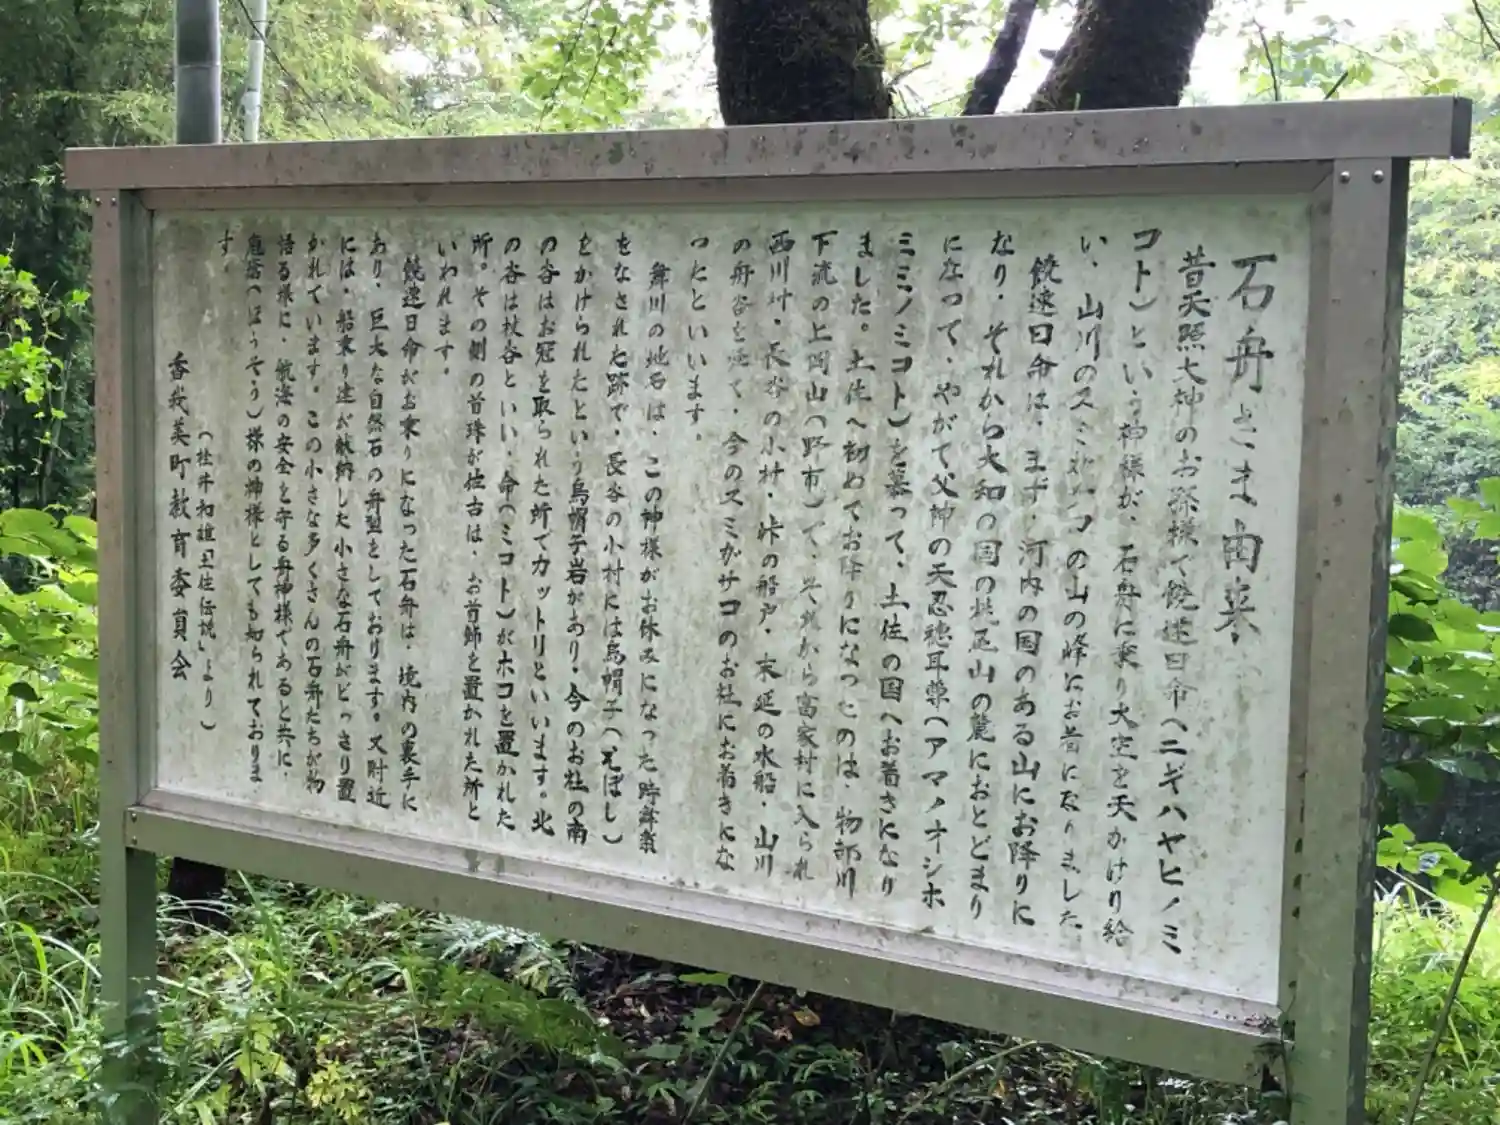 石舟さま由来
昔天照大神のお孫様で饒速日命(ニギハヤヒノミ
コト)という神様が、石舟に乗り大空を天かけり給
い、山川のスミ コの山の峰にお着になりました。
饒速日命は、まず・河内の国のある山にお降りに
なり・それから大和の国の 山の麓におとどまり
になって、やがて父神の天忍穂耳尊(アマノオシホ
ミミノミコト)を慕って、土佐の国へお着きになり
ました。土佐へ初めてお降りになったのは・物部川
下流の上岡山(野市)で、それから富家村に入られ
西川村・長谷の小村・峠の船戸・末延の水船・山川
の舟谷を て・今のスミガサコのお社にお着きにな
ったといいます。
舞川の 石は、この神様がお休みになった時舞
をなされた跡で・長谷の小村には烏帽子(えぼし)
をかけられたという烏帽子岩があり・今のお社の南
の谷はお冠を取られた所でカットリといいます。北
の谷は杖谷といい・命(ミコト)がホコを置かれた
所。その側の首珠が佐古は、お首飾を置かれた所と
いわれます。
饒速日命がお乗りになった石舟は、境内の裏手に
あり、巨大な自然石の舟型をしております。又附近
には・船乗り達が献納した小さな石舟がどっさり置
かれています。この小さな多くさんの石舟たちが物
語る様に・航海の安全を守る舟神様であると共に・
疱瘡(ほうそう)様の神様としても知られておりま
す。
(桂井和雄 土佐伝説」より)
香我美町教育委員会